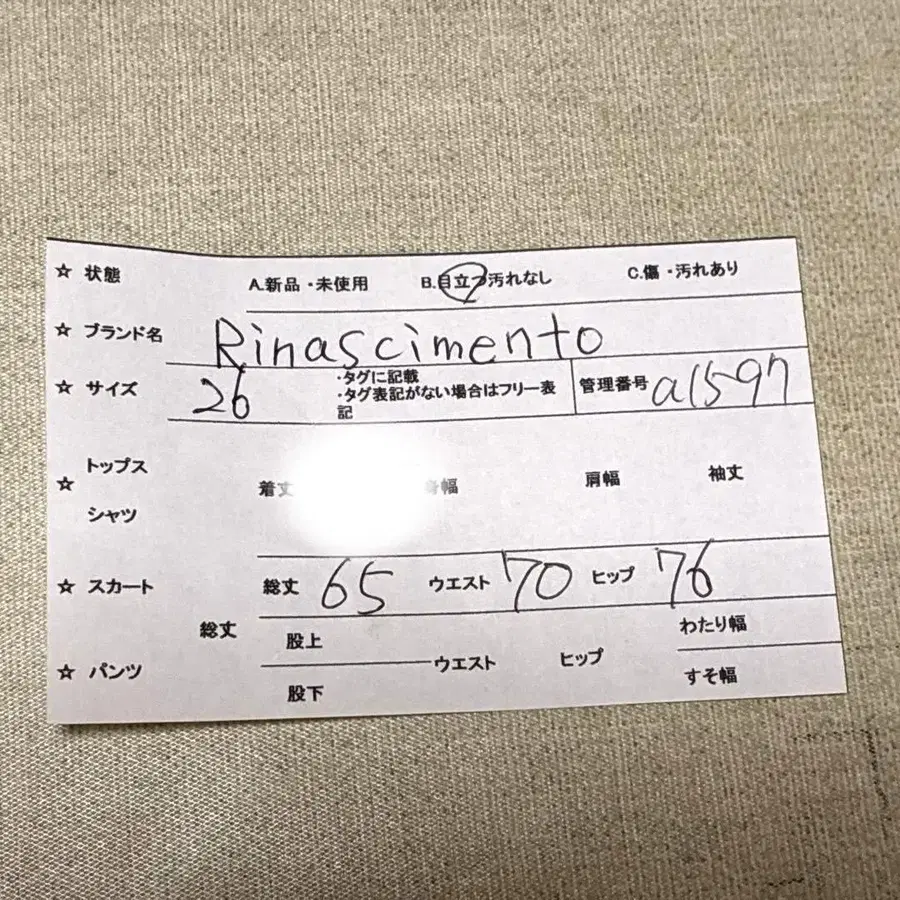 ☆ 状態 A.新品・未使用 B.目立つ汚れなし C.傷・汚れあり
☆ ブランド名 Rinascimento
☆ サイズ 26 ・タグに記載 ・タグ表記がない場合はフリー表記 管理番号 a1597
☆ トップス シャツ 着丈 身幅 肩幅 袖丈
☆ スカート 総丈 65 ウエスト 70 ヒップ 76
☆ パンツ 総丈 股上 股下 ウエスト ヒップ わたり幅 すそ幅